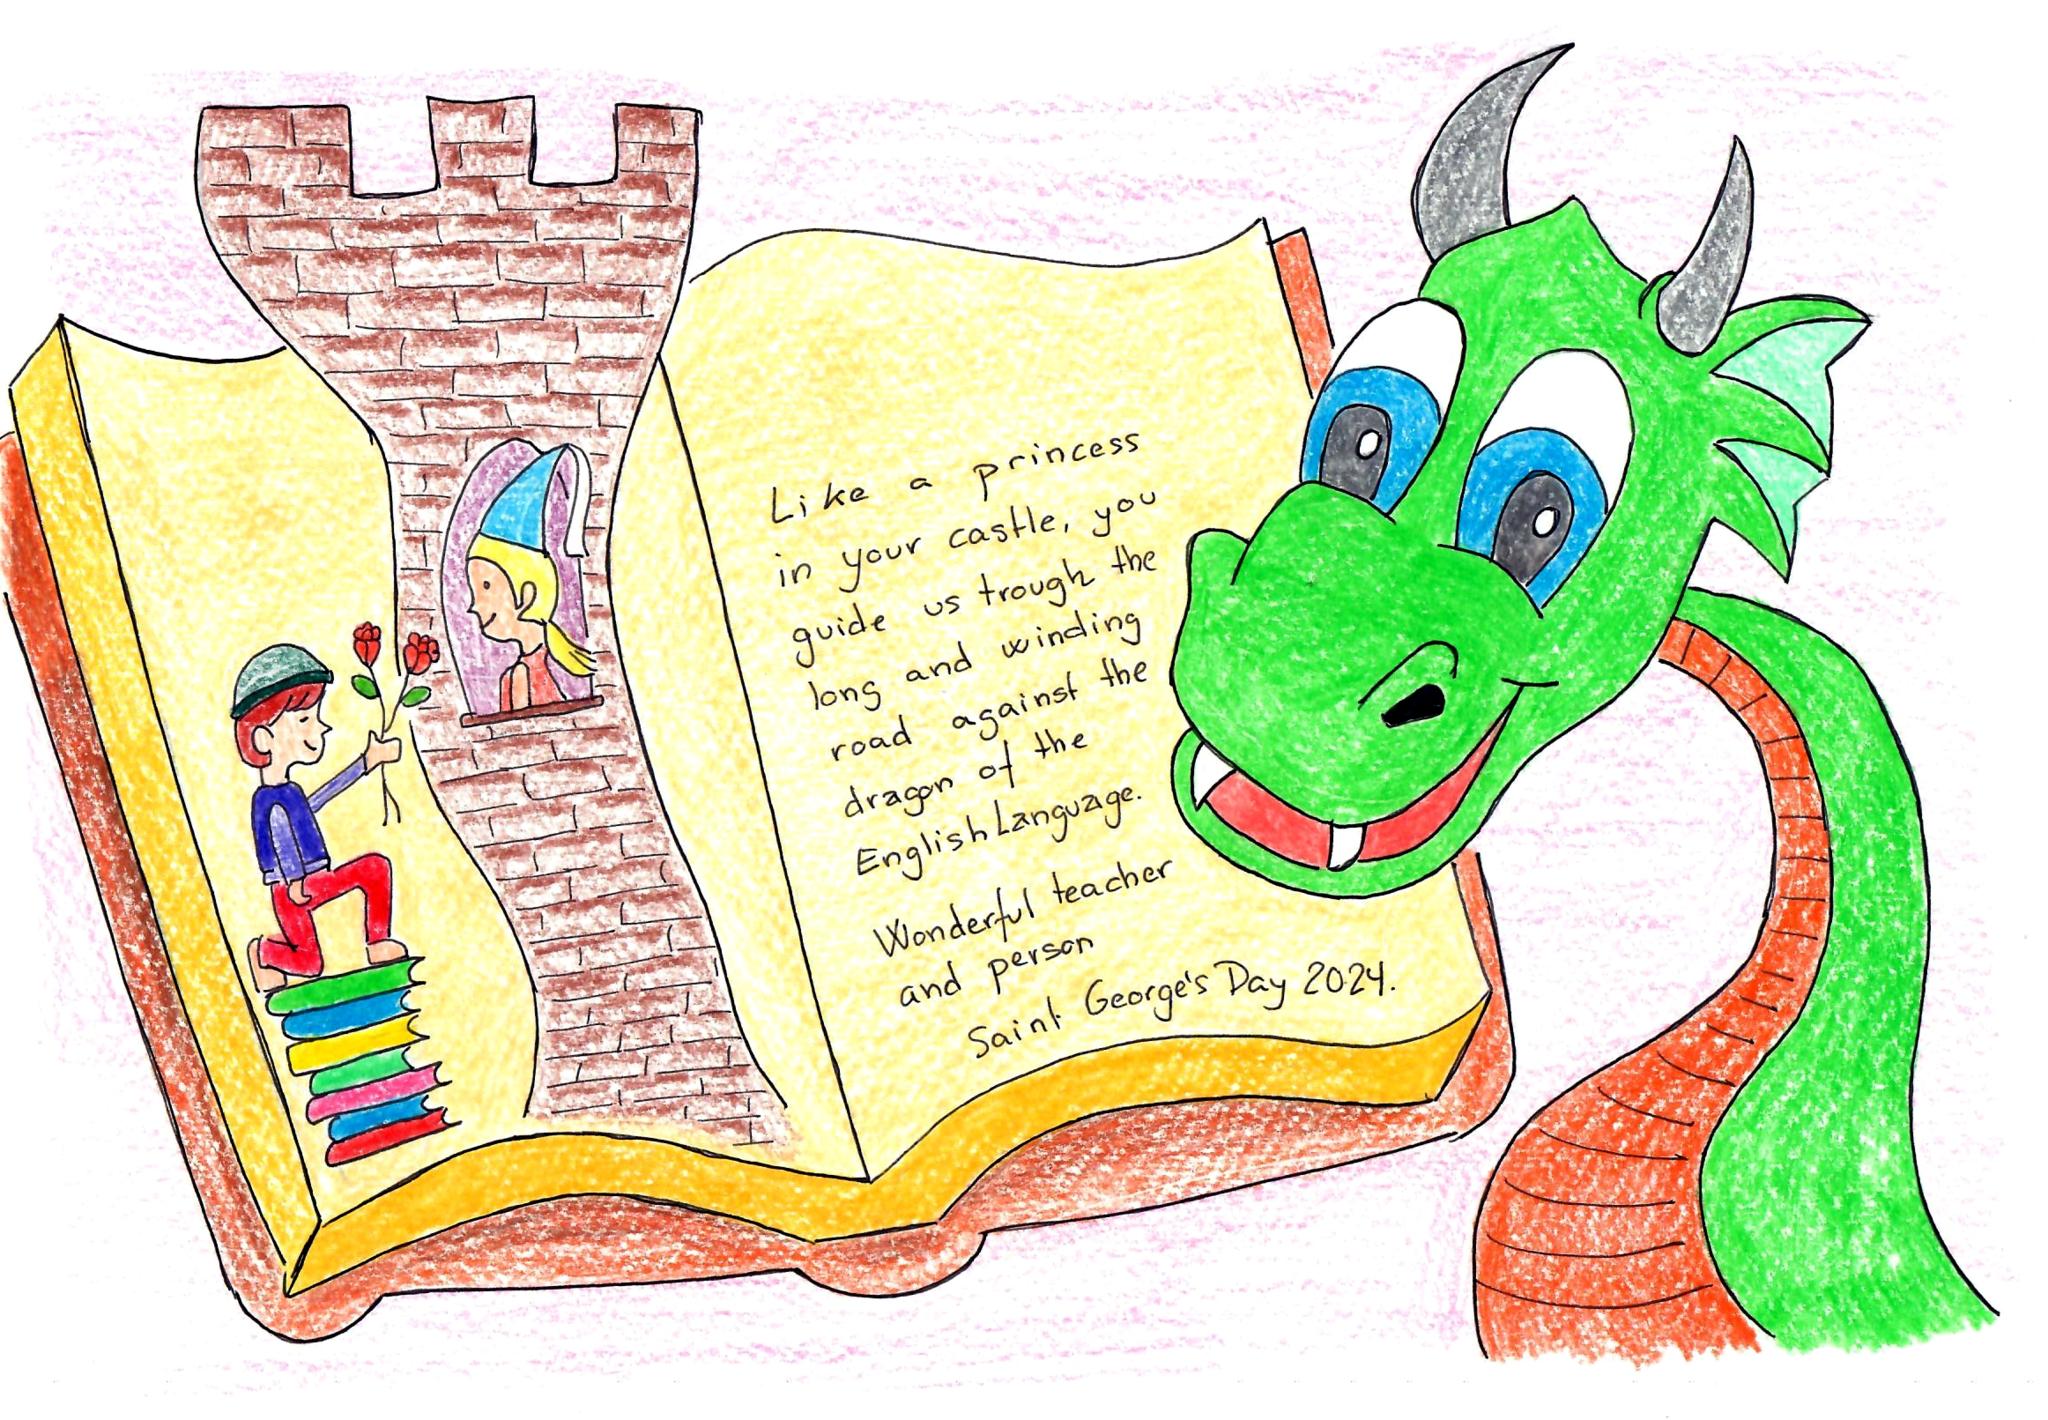 Like a princess
in your castle, you
guide us trough the
long and winding
road against the
dragon of the
English Language.
Wonderful teacher
and person
Saint George's Day 2024.